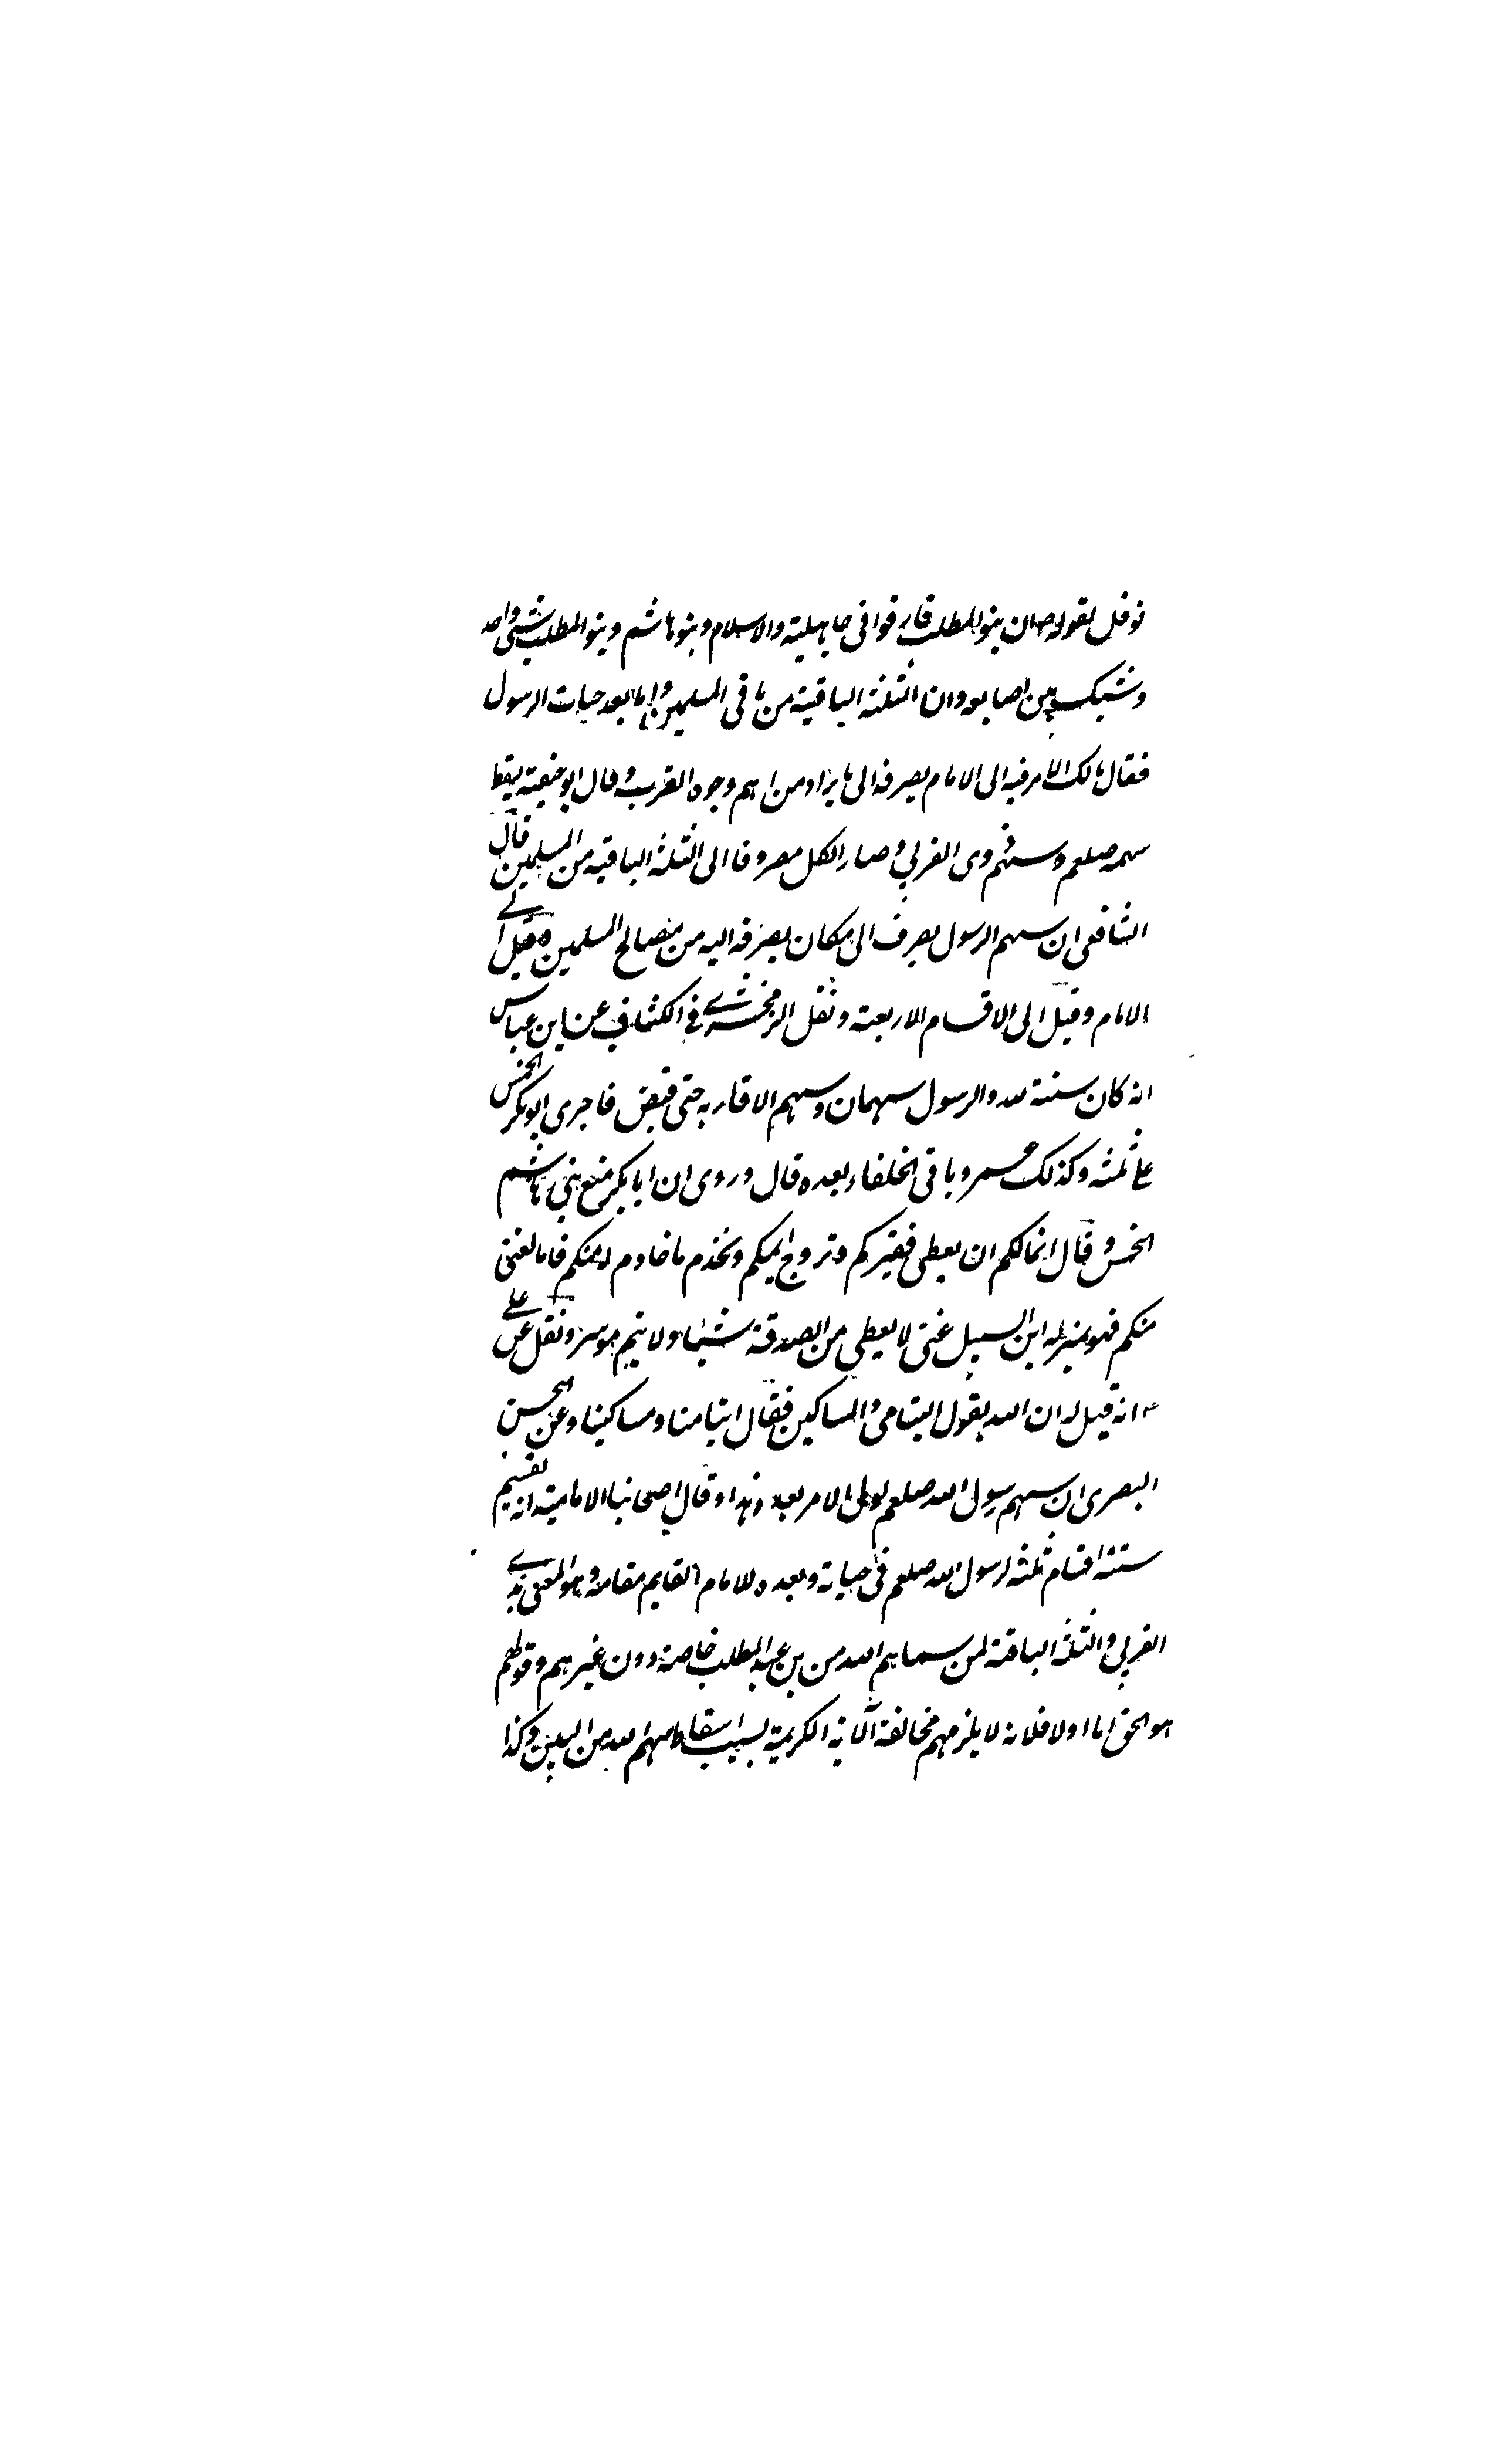 نوفل لقوله ص ان بنو المطلب فارقوا فى جاهلية والاسلام وبنو هاشم وبنو المطلب شئ واحد
وشبك بين اصابعه وان الثلثة الباقية من باقى المسلمين واما بعد حيات الرسول
فقال مالك الامر فيه الى الامام يصرفه الى ما يراه من اهم وجوه القرب وقال ابو حنيفة يسقط
سهمه صلعم وسهم ذوى القربى وصار الكل مصروفا الى الثلثة الباقية من المسلمين قال
الشافعى ان سهم الرسول يصرف الى مكان يصرفه اليه من مصالح المسلمين وقيل الى
الامام وقيل الى الاقسام الاربعة ونقل الزمخشرى فى الكشاف عن ابن عباس
انه كان ستة لله والرسول سهمان وسهم الاقاربه حتى قبض فاجرى ابو بكر الخمس
على ثلثه وكذلك عمر وباقى الخلفاء بعده قال وروى ان ابا بكر منع بنى هاشم
الخمس وقال انما لكم ان يعطى فقيركم وتزوج ايمكم ونخدم ما خادم له منكم فاما لغنى
منكم فهو بمنزله ابن السبيل غنى لا يعطى من الصدقة شيئا ولا يتيم موسر ونقل عن على
ع انه قيل له ان الله يقول اليتامى والمساكين فقال ايتامنا ومساكينا وعن الحسن
البصرى ان سهم رسول الله صلعم لولى الامر بعده هذا وقال اصحابنا الامامية انه يقسم
ستة اقسام ثلثه لرسول الله صلعم فى حياته وبعده للامام القايم مقامه وهو المعنى بذى
القربى والثلثة الباقية لمن سماهم الله من بن عبد المطلب خاصة دون غيرهم وقولهم
هو الحق اما اولا فلانه لا يلزمهم مخالفة الآية الكريمة بسبب اسقاط سهم الله من البين وكذا